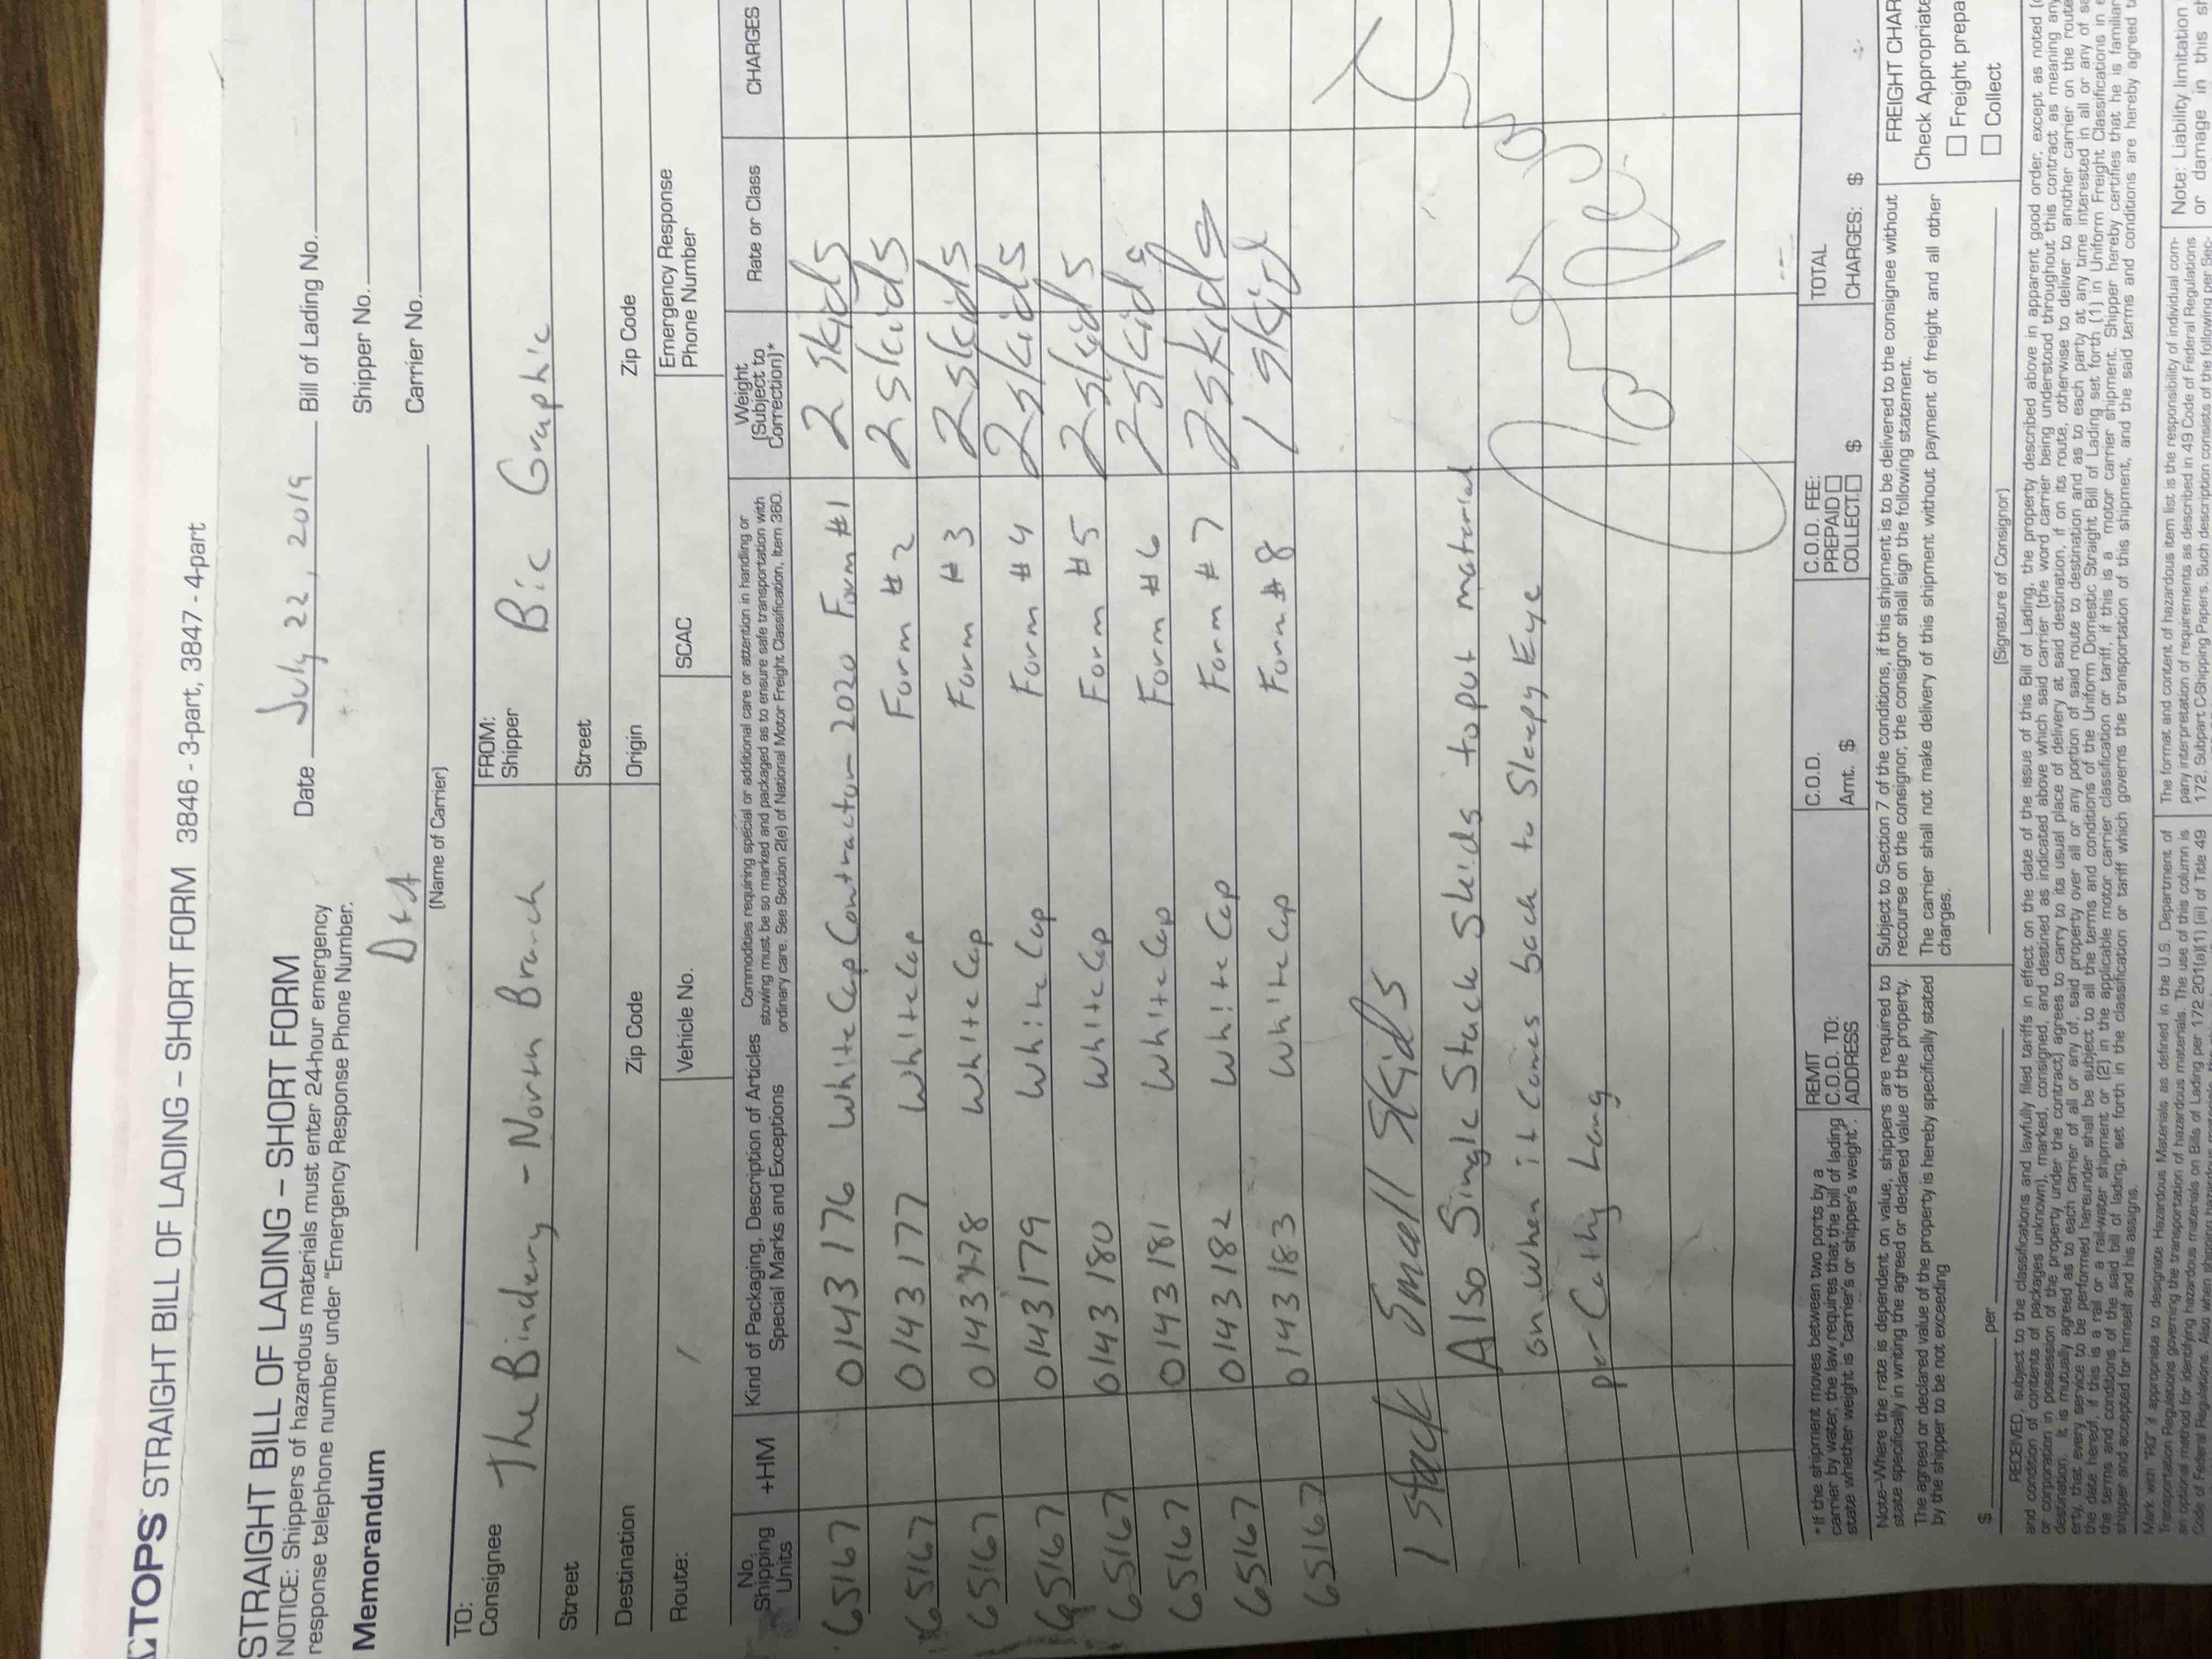 TOPS STRAIGHT BILL OF LADING – SHORT FORM 3846 - 3-part, 3847 - 4-part
STRAIGHT BILL OF LADING – SHORT FORM
NOTICE: Shippers of hazardous materials must enter 24-hour emergency
response telephone number under "Emergency Response Phone Number.
Memorandum
Date July 22, 2019
Bill of Lading No.
Shipper No.
Carrier No.
(Name of Carrier)
TO:
Consignee The Bindery - North Branch
FROM:
Shipper Bic Graphic
Street
Street
Destination Zip Code
Origin Zip Code
Route: Vehicle No. SCAC
Emergency Response
Phone Number
No.
Shipping
Units
+HM
Kind of Packaging, Description of Articles
Special Marks and Exceptions
Commodities requiring special or additional care or attention in handling or
stowing must be so marked and packaged as to ensure safe transportation with
ordinary care. See Section 2(e) of National Motor Freight Classification, Item 360.
Weight
(Subject to
Correction)*
Rate or Class
CHARGES
65167 0143176 White Cap Contractor 2020 Form #1 2 skids
65167 0143177 White Cap Form #2 2 skids
65167 0143178 White Cap Form #3 2 skids
65167 0143179 White Cap Form #4 2 skids
65167 0143180 White Cap Form #5 2 skids
65167 0143181 White Cap Form #6 2 skids
65167 0143182 White Cap Form #7 2 skids
65167 0143183 White Cap Form #8 1 skid
1 stack Small Skids
Also Single Stack Skids to put material
on when it comes back to Sleepy Eye
per Cathy Lang
*If the shipment moves between two ports by a
carrier by water, the law requires that the bill of lading
state whether weight is "carrier's or shipper's weight".
REMIT
C.O.D. TO:
ADDRESS
C.O.D.
Amt. $
C.O.D. FEE:
PREPAID
COLLECT $
TOTAL
CHARGES: $
Note–Where the rate is dependent on value, shippers are required to
state specifically in writing the agreed or declared value of the property.
The agreed or declared value of the property is hereby specifically stated
by the shipper to be not exceeding
$ per
Subject to Section 7 of the conditions, if this shipment is to be delivered to the consignee without
recourse on the consignor, the consignor shall sign the following statement.
The carrier shall not make delivery of this shipment without payment of freight and all other
charges.
(Signature of Consignor)
FREIGHT CHAR
Check Appropriate
Freight prepa
Collect
RECEIVED, subject to the classifications and lawfully filed tariffs in effect on the date of the issue of this Bill of Lading, the property described above in apparent good order, except as noted
and condition of contents of packages unknown), marked, consigned, and destined as indicated above which said carrier (the word carrier being understood throughout this contract as meaning any
or corporation in possession of the property under the contract) agrees to carry to its usual place of delivery at said destination, if on its route, otherwise to deliver to another carrier on the route
destination. It is mutually agreed as to each carrier of all or any of, said property over all or any portion of said route to destination and as to each party at any time interested in all or any of
erty, that every service to be performed hereunder shall be subject to all the terms and conditions of the Uniform Domestic Straight Bill of Lading set forth (1) in Uniform Freight Classifications in
the date hereof, if this is a rail or a rail-water shipment or (2) in the applicable motor carrier classification or tariff, if this is a motor carrier shipment. Shipper hereby certifies that he is familiar
the terms and conditions of the said bill of lading, set forth in the classification or tariff which governs the transportation of this shipment, and the said terms and conditions are hereby agreed
shipper and accepted for himself and his assigns.
Mark with "RQ" if appropriate to designate Hazardous Materials as defined in the U.S. Department of
Transportation Regulations governing the transportation of hazardous materials. The use of this column is
an optional method for identifying hazardous materials on Bills of Lading per 172.201(a)(1)(iii) of Title 49
Code of Federal Regulations. Also when shipping hazardous
The format and content of hazardous item list is the responsibility of individual com-
pany interpretation of requirements as described in 49 Code of Federal Regulations
172, Subpart C-Shipping Papers. Such description consists of the following per Sec-
Note: Liability limitation
or damage in this